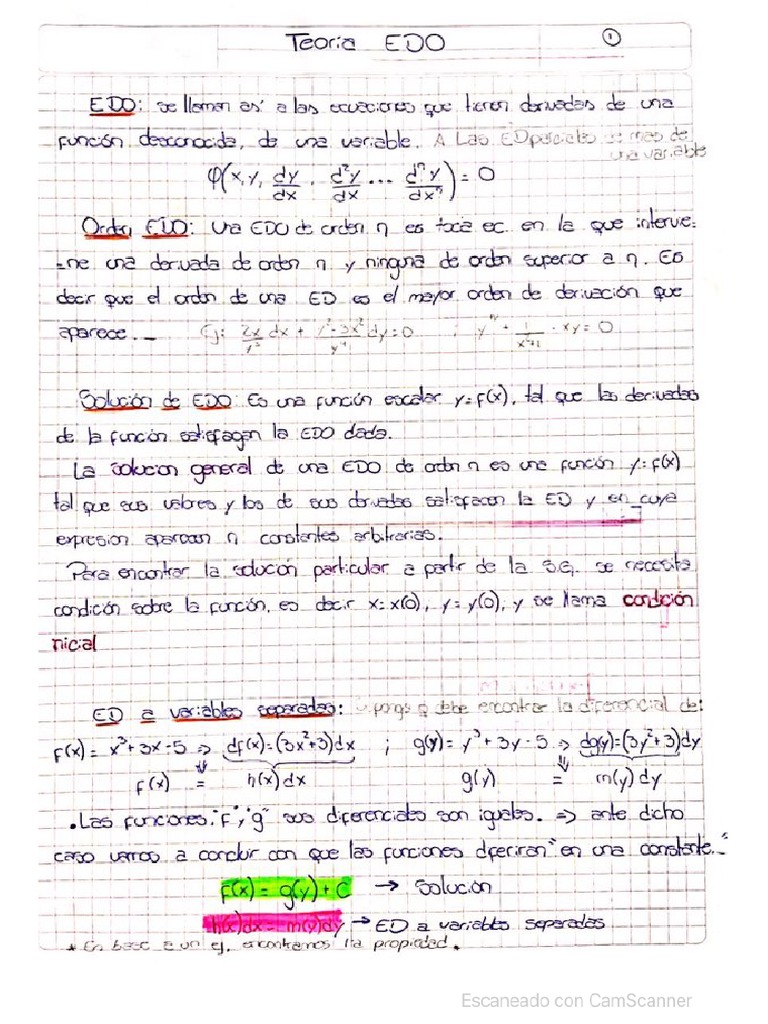 Teoria EDO ①
EDO: se llaman as' a las ecuaciones que tienen derivadas de una
función desconocida, de una variable. A Las ED parciales de mas de
una variable
φ(x, y, dy/dx . d²y/dx ... dⁿy/dxⁿ) = 0
Orden EDO: Una EDO de orden n es toda ec. en la que intervie-
-ne una derivada de orden n y ninguna de orden superior a n. Es
decir que el orden de una ED es el mayor orden de derivación que
aparece._ Ej: 2x/y³ dx + y²-3x²/y⁴ dy=0 ;
Solución de EDO: Es una función escalar y=f(x), tal que las derivadas
de la función satisfagan la EDO dada.
La solucion general de una EDO de orden n es una función y=f(x)
tal que sus valores y los de sus derivadas satisfacen la ED y en cuya
expresion aparecen n constantes arbitrarias.
Para encontrar la solucion particular a partir de la S.G. se necesita
condición sobre la función, es decir x=x(0), y=y(0), y se llama condición
nicial
ED a variables separadas: debe encontrar la diferencial de:
f(x) = x³+3x-5 ⇒ df(x)=(3x²+3)dx ; g(y)= y³+3y-5 ⇒ dg(y)=(3y²+3)dy
f(x) = h(x)dx g(y) = m(y)dy
• Las funciones "f" y "g" sus diferenciales son iguales. ⇒ ante dicho
caso vamos a concluir con que las funciones diferiran "en una constante._"
f(x) = g(y)+C → Solución
h(x)dx = m(y)dy → ED a variables separadas
* En base a un ej, encontramos la propiedad.
Escaneado con CamScanner